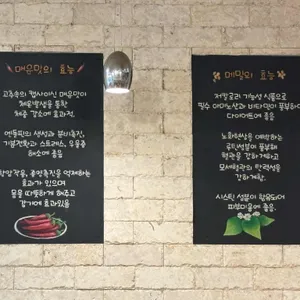 매운맛의 효능
고추속의 캡사이신 매운맛이
체온발생을 통한
체중 감소에 효과적.
엔돌핀의 생성과 분비촉진,
기분전환과 스트레스, 우울증
해소에 좋음
항암작용, 종양촉진을 억제하는
효과가 있으며
몸을 따뜻하게 해주고
감기에 효과있음
메밀의 효능
저칼로리 기능성 식품으로
필수 아미노산과 비타민이 풍부해
다이어트에 좋음.
노화현상을 예방하는
루틴성분이 풍부해
혈관을 강하게하고
모세혈관의 탄력성을
강하게함.
시스틴 성분이 함유되어
피부미용에 좋음.